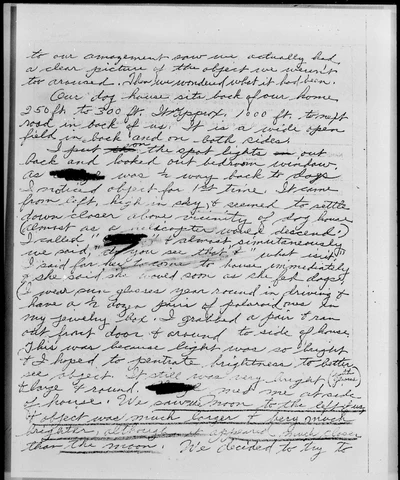 to our amazement saw we actually had
a clear picture of the object we weren't
too aroused. Then we wondered what it had been.
Our dog house sits back of our home
250 ft. to 300 ft. It approx. 1000 ft. to next
road in back of us. It is a wide open
field in back and on both sides
I put the spot lite on out
back and looked out bedroom window
as was ½ way back to dogs
I noticed object for 1st time. It came
from left, high in sky, & seemed to settle
down closer above vicinity of dog house
(almost as a helicopter would descend)
I called " & almost simultaneously
we said, do you see that & what is it
I said for to come to house immediately
& she said she would soon as she fed dogs
I wear sun glasses year round in driving &
have a ½ dozen pair of polaroids in
my jewelry box. I grabbed a pair & ran
out front door & around to side of house
This was because light was so bright
& I hoped to pentrate brightness to better
see object. It still was very bright
& large & round. met me at side
of house. We saw the moon to the left of us
& object was much larger & very much
brighter, although it appeared much closer
than the moon. We decided to try to